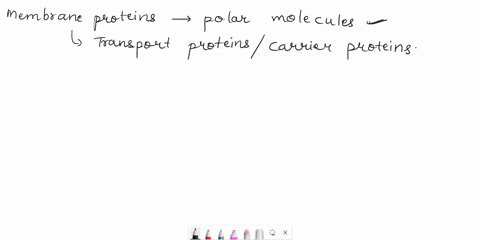 Membrane proteins → polar molecules
↳ Transport proteins / carrier proteins.